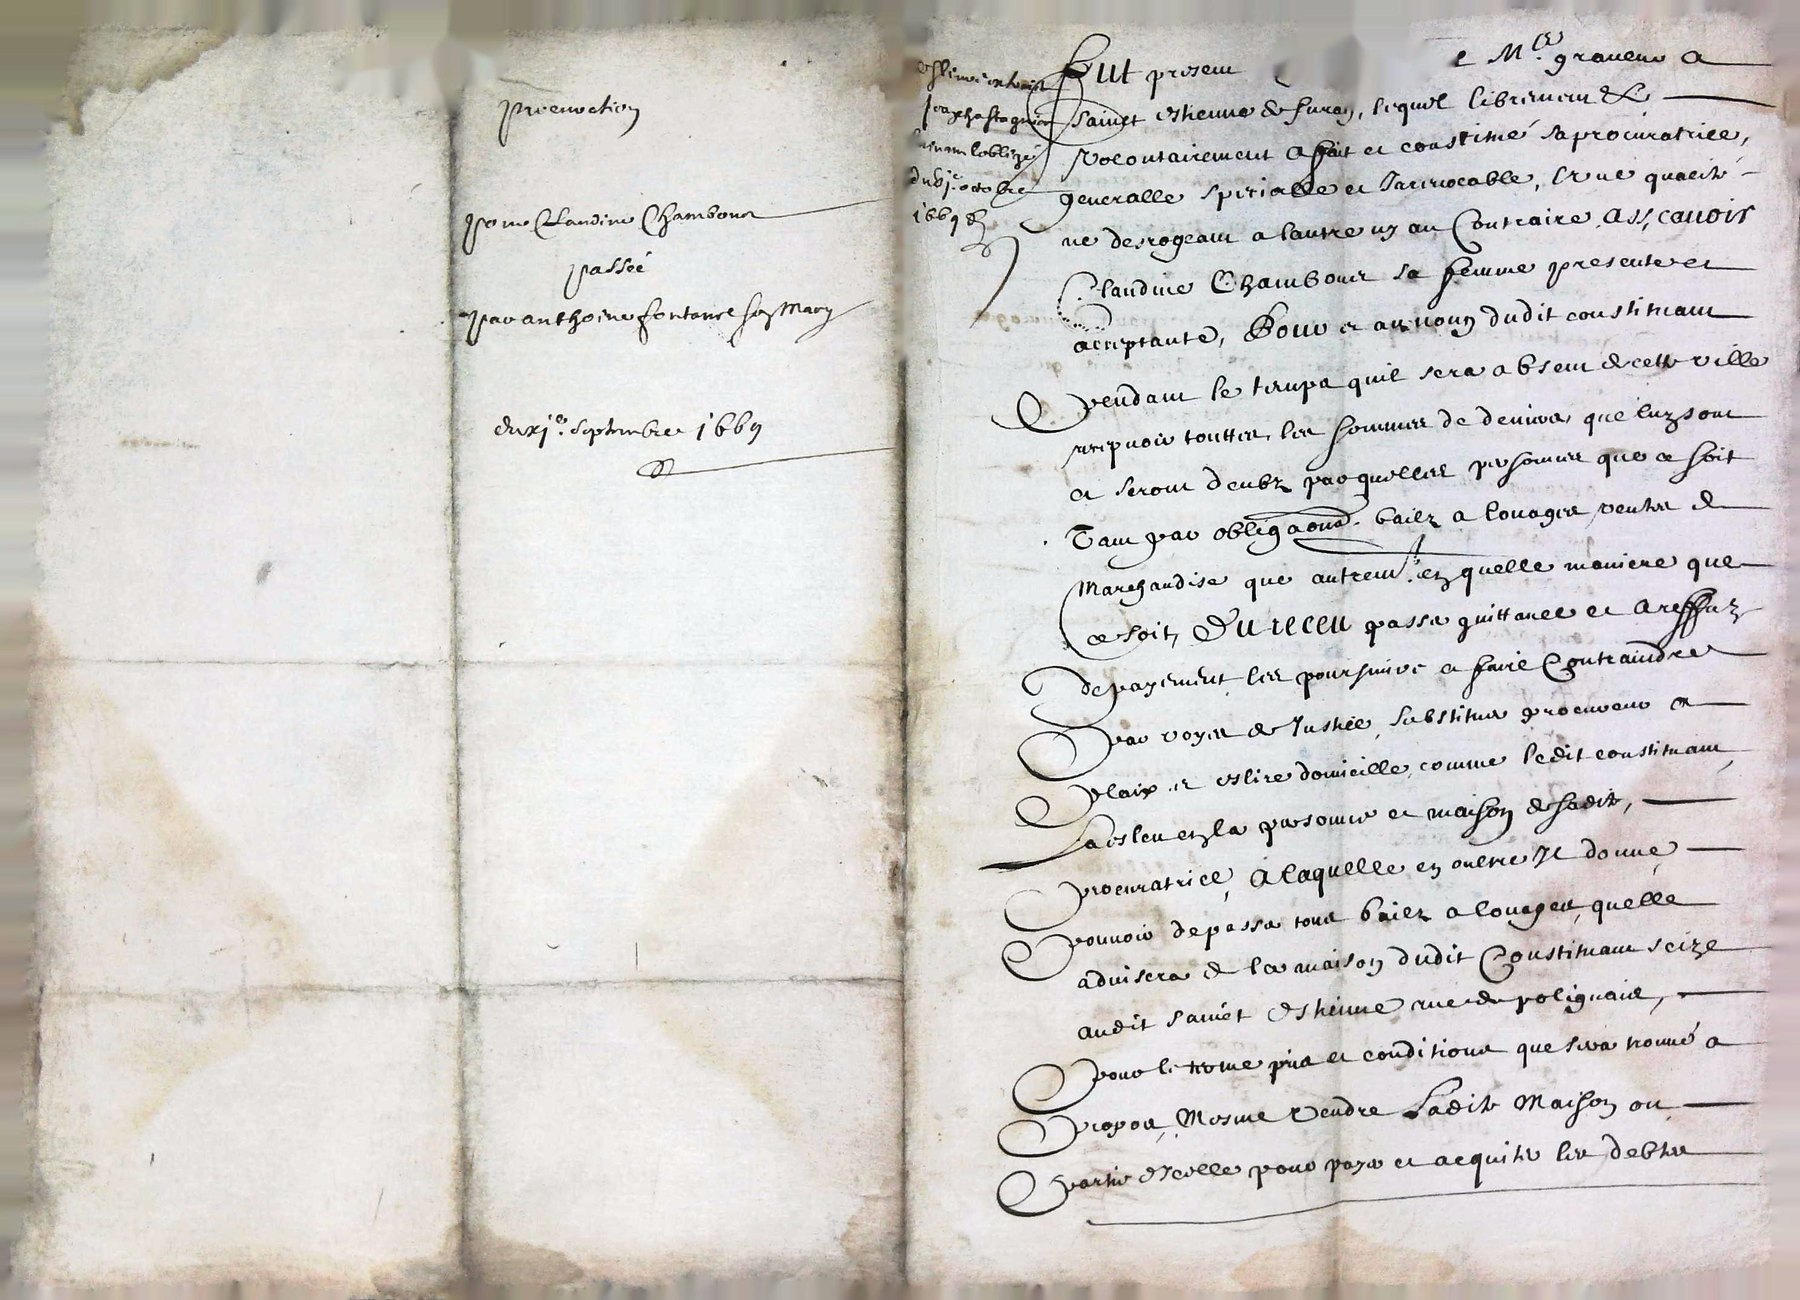 procuration
pour Claudine Chambouet
passée
par anthoine fontanel son mary
du xj.e septembre 1669
du Vj.e octobre
1669
Fut present e M.re graveur a
Sainct Estienne de furan, lequel librement &
Volontairement a fait et constitué sa procuratrice,
generalle specialle et Inrevocable, l'une quallité
ne derogeant a lautre ny au Contraire, assçauoir
Claudine Chambouet sa femme presente et
acceptante, Pour et au nom dudit constituant
pendant le temps quil sera absent de cette ville
recepuoir touttes les sommes de deniers que luy sont
et seront deubz par quelles personnes que ce soit
Tant par obligaons. bailz a louages, ventes de
Marchandise que autremt. en quelle maniere que
ce soit, Du receu passer quittance et a reffuz
de payement les poursuivre et faire Contraindre
par voyes de Justice, substituer procureur a
plaix et eslire domicille, comme ledit constituant
La esleu en la personne et maison de sadite,
procuratrice, a laquelle en oultre Il donne
pouuoir de passer tous bailz a louages, quelle
aduisera de la maison dudit Constituant scize
audit sainct Estienne rue de polignais,
pour le terme prix et conditions que sera trouué a
propos, Mesme Vendre Ladite Maison ou
partie d'Icelle pour payer et acquiter les debtes